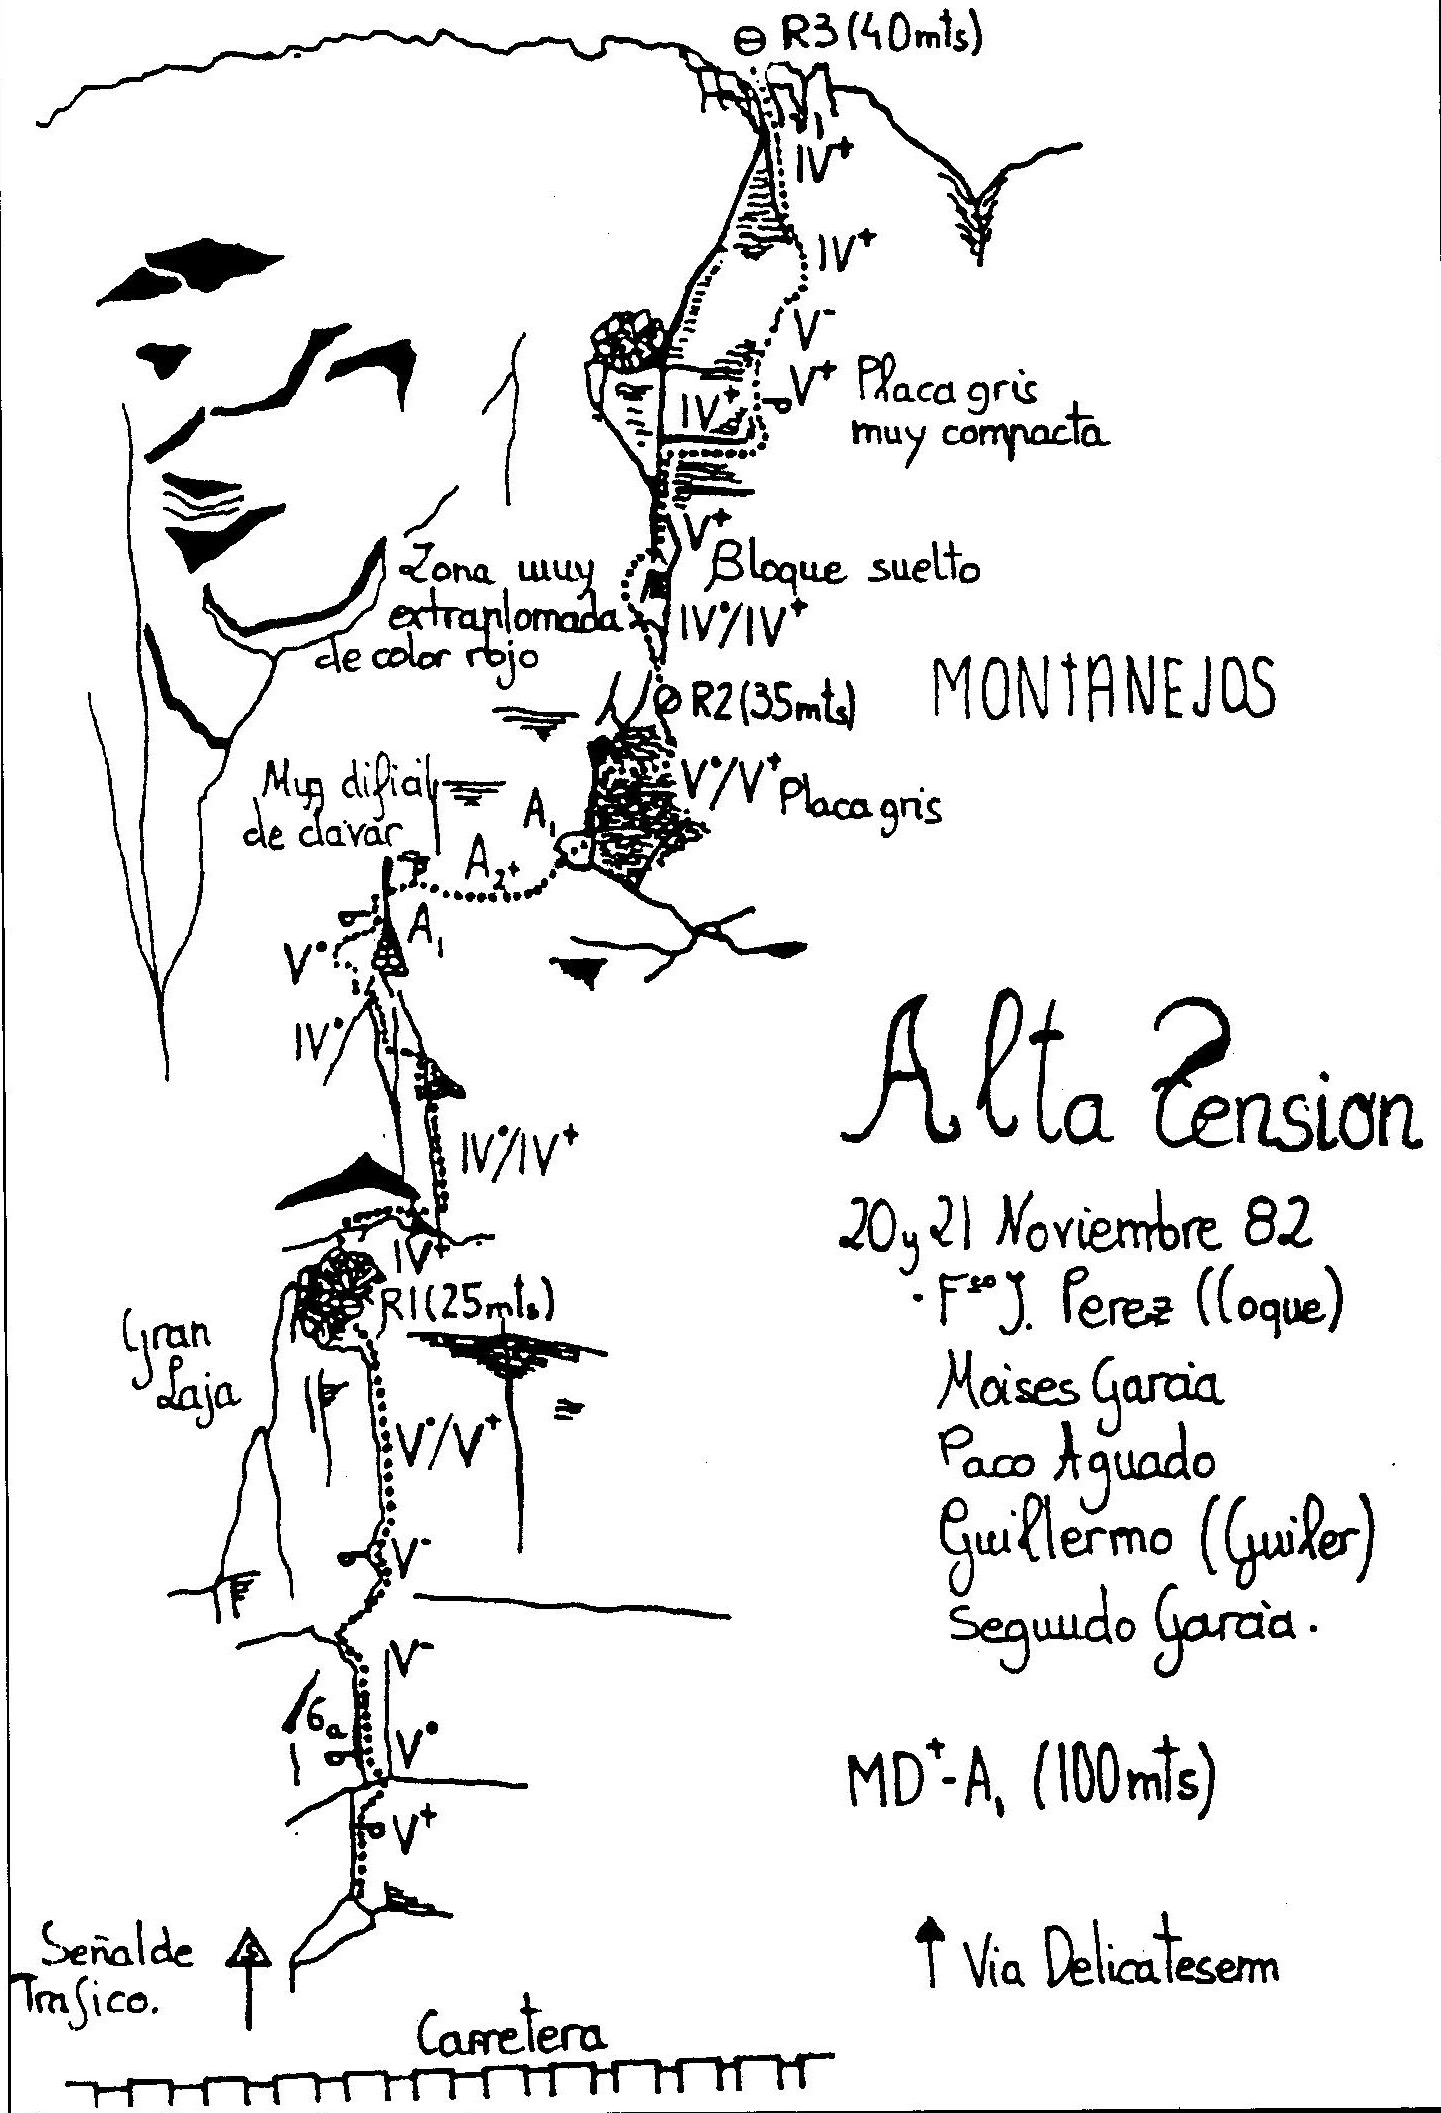 R3 (40mts)
IV+
IV+
V-
V+ Placa gris
muy compacta
IV+
V+
Bloque suelto
Zona muy
extraplomada
de color rojo
IV°/IV+
R2 (35mts)
MONTANEJOS
V°/V+ Placa gris
Muy dificil
de clavar
A1
A2+
A1
V°
IV°
Alta Tension
IV°/IV+
20 y 21 Noviembre 82
IV+
R1 (25mts)
· Fco J. Perez (Coque)
Gran
Laja
Moises Garcia
V°/V+
Paco Aguado
Guillermo (Guiler)
V-
Segundo Garcia.
V-
6a
V°
MD+-A1 (100mts)
V+
Señal de
Trafico.
Via Delicatesem
Carretera